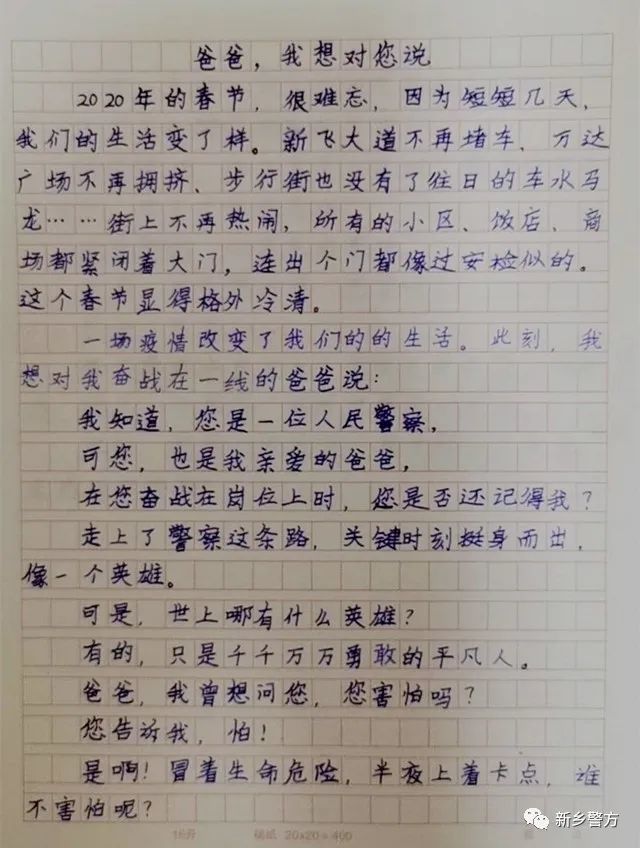 爸爸，我想对您说
2020年的春节，很难忘，因为短短几天，
我们的生活变了样。新飞大道不再堵车、万达
广场不再拥挤、步行街也没有了往日的车水马
龙……街上不再热闹，所有的小区、饭店、商
场都紧闭着大门，连出个门都像过安检似的。
这个春节显得格外冷清。
一场疫情改变了我们的的生活。此刻，我
想对我奋战在一线的爸爸说：
我知道，您是一位人民警察，
可您，也是我亲爱的爸爸，
在您奋战在岗位上时，您是否还记得我？
走上了警察这条路，关键时刻挺身而出，
像一个英雄。
可是，世上哪有什么英雄？
有的，只是千千万万勇敢的平凡人。
爸爸，我曾想问您，您害怕吗？
您告诉我，怕！
是啊！冒着生命危险，半夜上着卡点，谁
不害怕呢？
16开 稿纸 20×20=400
新乡警方